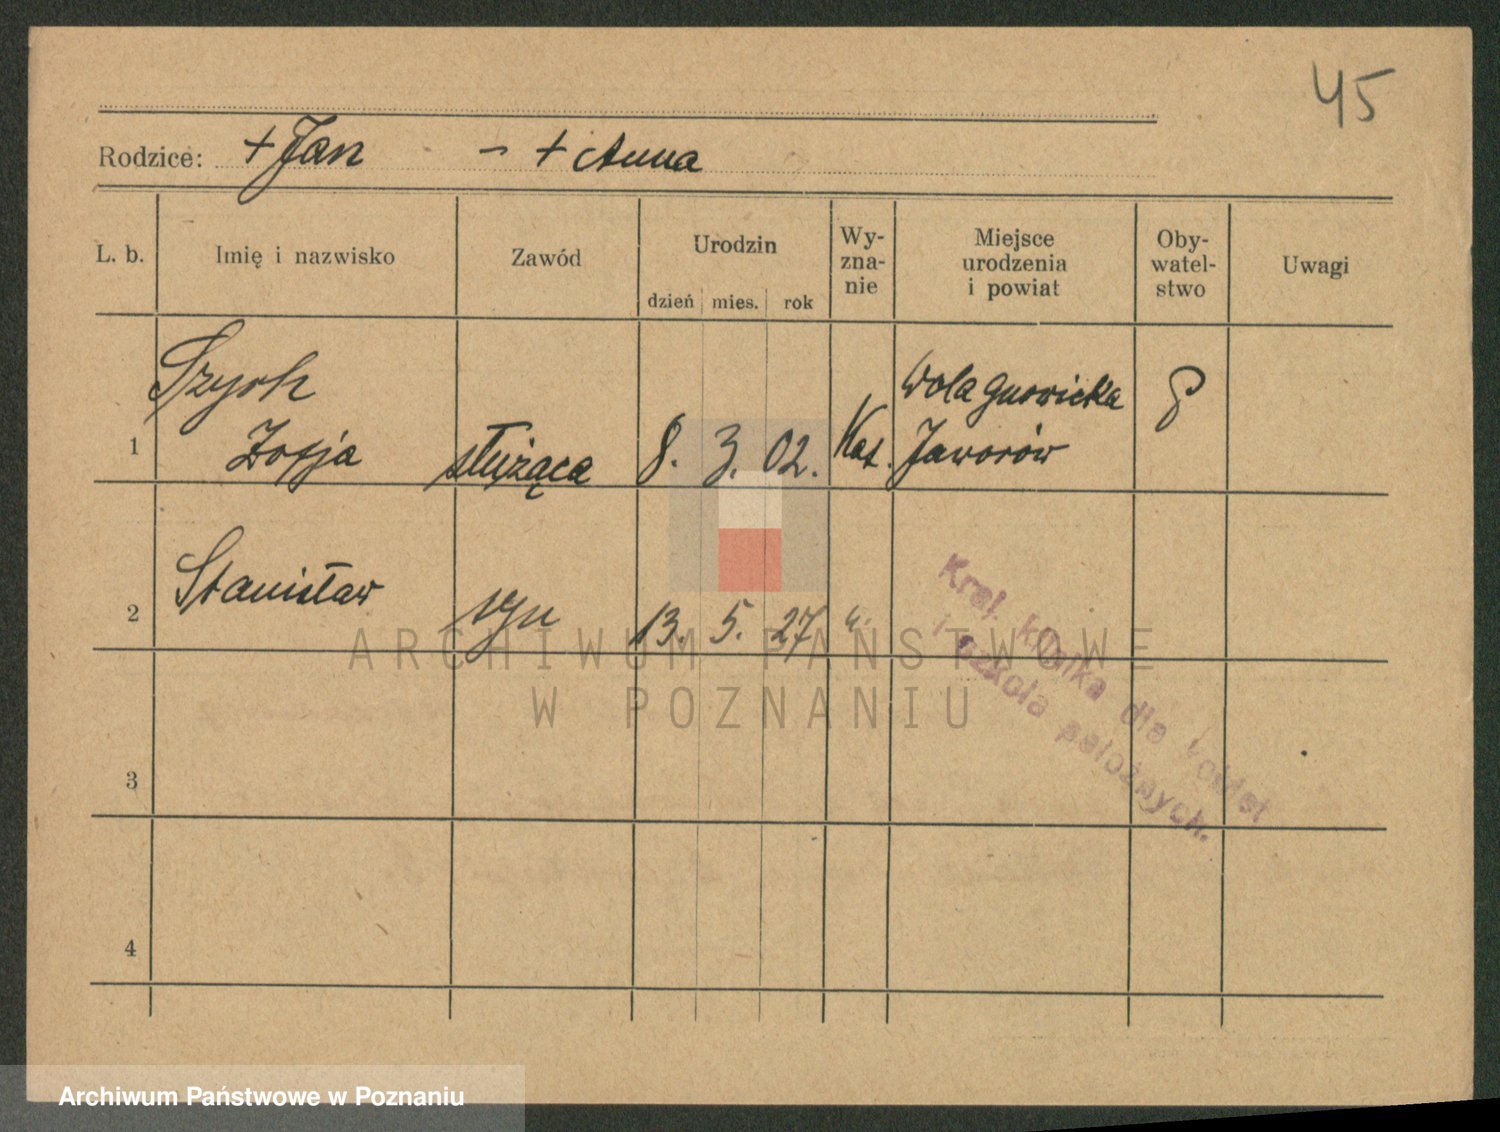 45
Rodzice: + Jan — + Anna
L. b. Imię i nazwisko Zawód Urodzin dzień mies. rok Wy- zna- nie Miejsce urodzenia i powiat Oby- watel- stwo Uwagi
Szych
Wola
1 Zofja służąca 8. 3. 02. Kat. Jaworów
2 Stanisław syn 13. 5. 27 "
Kraj. klinika dla kobiet
i szkoła położnych.
3
4
ARCHIWUM PAŃSTWOWE
W POZNANIU
Archiwum Państwowe w Poznaniu